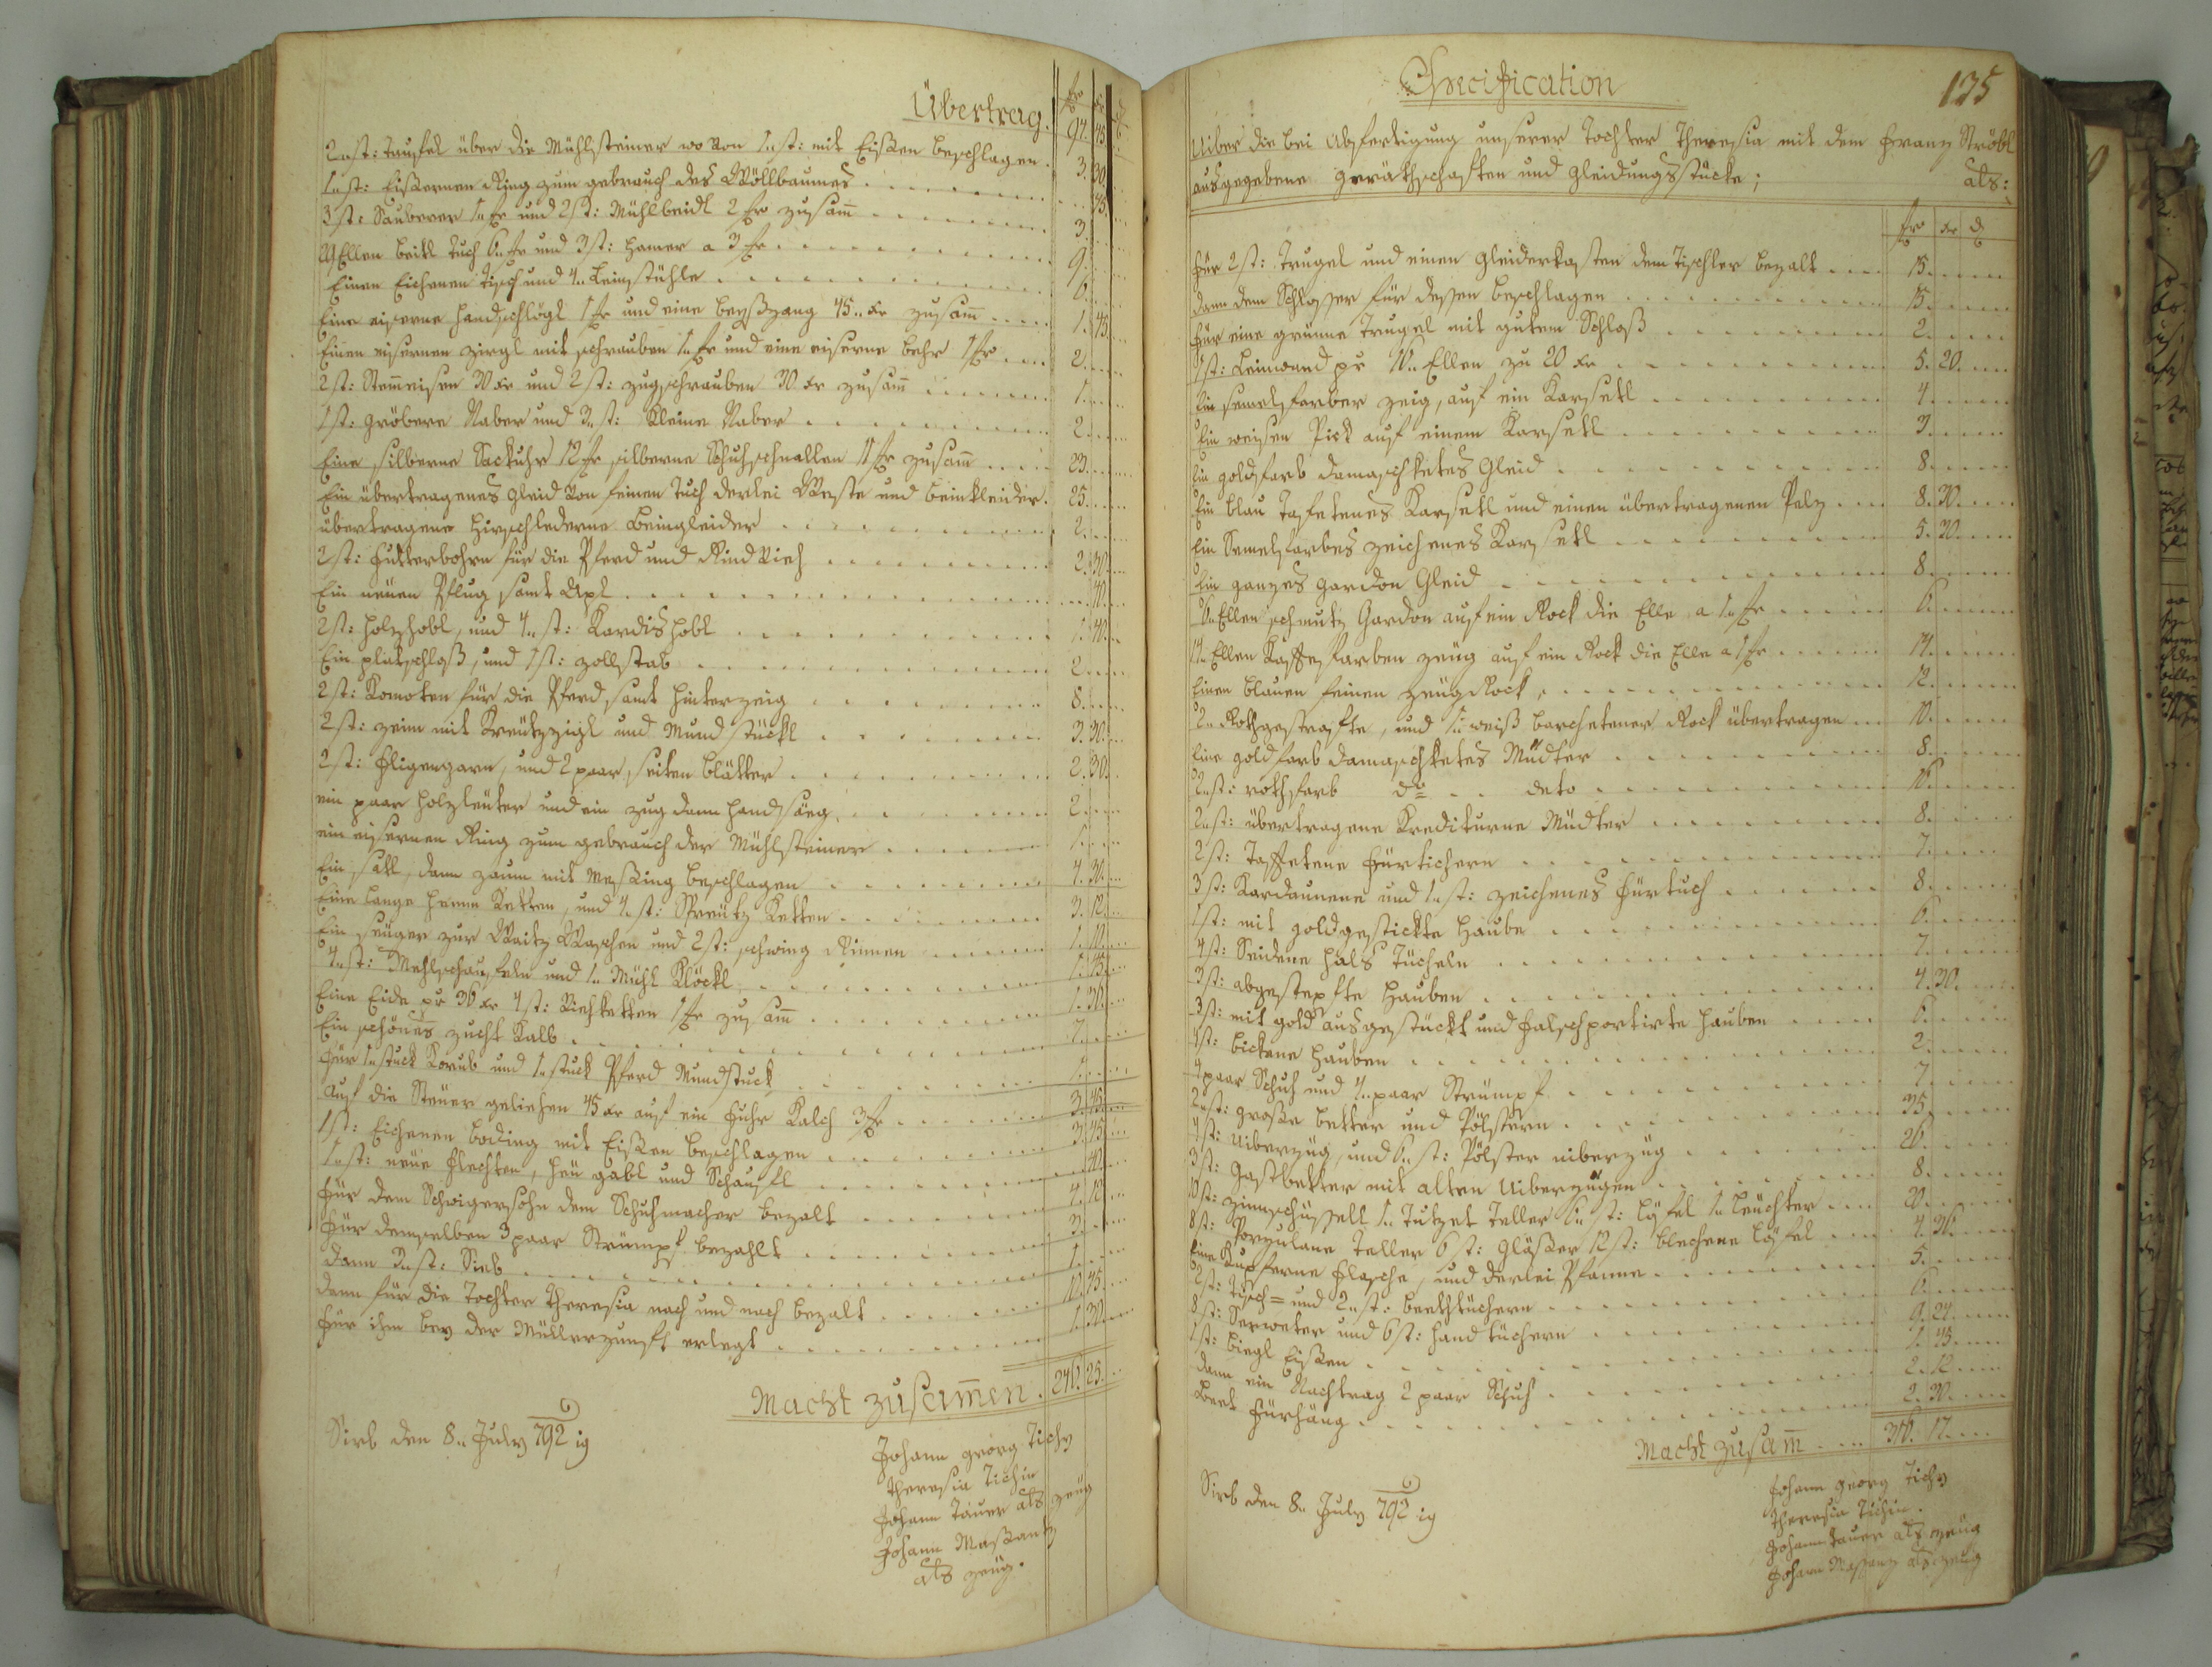 Übertrag. fr xr d
97. 45.
2„ st: Taufel über die Mühlsteiner wo von 1„ st: mit Eißen beschlagen. 3. 30.
1„ st: Eißernen Ring zum gebrauch des Wöllbaumes . . . 35.
3 st: Sauberer 1„ fr und 2 st: Mühlbeidl 2 fr zusam̄ . . . 3.
Ellen beitl tuch 6„ fr und 3 st: hamer a 3 fr . . . 9.
Einen Eichenen tisch und 4„ Leimstühle . . . 6.
Eine eiserne handschlögl 1 fr und eine beyßzang 45„ xr zusam̄ . . . 1. 45
Einen eisernen zirgl mit schrauben 1„ fr und eine eiserne behr 1 fr . . . 2.
2 st: Stem̄eisen 30 xr und 2 st: zugschrauben 30 xr zusam̄ . . . 1.
1 st: gröbere Naber und 3„ st: kleine Naber . . . 2.
Eine silberne Sackuhr 12 fr silberne Schuhschnallen 11 fr zusam̄ . . . 23.
Ein übertragenes gleid von feinen tuch derlei Weste und beinkleider. 25.
übertragene hirschlederne beingleider . . . 2.
2 st: futterbohrn für die Pferd und Rind Vieh . . . 2. 30.
Ein neuen Pflug samt Apl . . . 40.
2 st: holzhobl, und 4„ st: Kardishobl . . . 1. 40.
Ein platschloß, und 1 st: zollstab . . . 2.
2 st: Komoten für die Pferd samt hinterzeig . . . 8.
2 st: zeim mit Kreutzzigl und Mundstückl . . . 3. 30.
2 st: Fligengarn, und 2 paar seiten blätter . . . 2. 30.
ein paar holzleuter und ein zug dann handsäeg . . . 2.
ein eisernen Ring zum gebrauch der Mühlsteiner . . . 1.
Ein satl, dann zaum mit Meßing beschlagen . . . 4. 30.
Eine lange hemm Ketten, und 4„ st: Streutz Ketten . . . 3. 12.
Ein seuger zur Waitz Waschen und 2 st: schwing Rinnen . . . 1. 10.
4„ st: Mehlschaufeln und 1„ Mühl Klöckl . . . 1. 15.
Eine Eide pr 36 xr 4 st: Viehketten 1 fr zusam̄ . . . 1. 36.
Ein schönes zucht Kalb . . . 7.
für 1„ stuck Korub und 1„ stuck Pferd Mundstuck . . . 1.
auf die Steuer geliehen 45 xr auf ein fuhr Kalch 3 fr . . . 3. 45.
1 st: Eichenen boding mit Eißen beschlagen . . . 3. 45.
1„ st: neue flechten, heu gabl und Schaufl . . . 40.
für dem Schwigersohn dem Schuhmacher bezalt . . . 4. 10.
für demselben 3 paar Strümpf bezahlt . . . 3.
dann 3„ st: Sieb . . . 1.
dann für die Tochter theresia nach und nach bezalt . . . 10. 45.
für ihm bey der Müllerzunft erlegt . . . 1. 30.
Macht zusam̄en . 25.
Sirb den 8„ July 792 ig
Johann georg Tichy
theresia Tichin
Johann Tauer als zeüg
Johann Maßantz
als zeüg.
Specification 135
Uiber die bei Abfertigung unserer Tochter Theresia mit dem Franz Ströbl
ausgegebene geräthschaften und gleidungsstücke; als:
fr xr d
für 2 st: Trugel und einen gleiderkasten dem Tischler bezalt . . . 15.
dann dem Schlosser für dessen beschlagen . . . 15.
für eine grünne Trugel mit gutem Schloß . . . 2.
1 st: Leinwand pr 16„ Ellen zu 20 xr . . . 5. 20.
Ein semelfarber zeig, auf ein Karsetl . . . 4.
Ein weisen Pick auf einem Karsetl . . . 3.
Ein goldfarb damaschketes Gleid . . . 8.
Ein blau Tafetenes Karsetl und einen übertragenen Pelz . . . 8. 30.
Ein Semelfarbes zeichenes Karsetl . . . 5. 30.
Ein ganzes gardon Gleid . . . 8.
6„ Ellen schmutz Gardon auf ein Rock die Elle a 1„ fr . . . 6.
14„ Ellen Kaffefarben zeüg auf ein Rock die Elle a 1 fr . . . 14.
Einen blauen feinen zeüg Rock, . . . 12.
2„ Rothgestrafte, und 1„ weiß barchetener Rock übertragen . . . 10.
Eine goldfarb damaschketes Müdter . . . 8.
2„ st: rothfarb do . . deto . . . 16.
2„ st: übertragene Krediturne Müdter . . . 8.
2 st: Taffetene Fürtichern . . . 7.
3 st: Kardaunene und 1„ st: zeichenes Fürtuch . . . 8.
1 st: mit goldgestickte Haube . . . 6.
4 st: Seidene hals Tücheln . . . 7.
3 st: abgestepfte Hauben . . . 4. 30.
3 st: mit gold ausgestückt und falschportirte hauben . . . 6.
1 st: bickene Hauben . . . 2.
4 paar Schuh und 4„ paar Strümpf . . . 7.
2„ st: große better und Pölstern . . . 35.
4 st: Uiberzüg, und 6„ st: Pölster uiberzüg . . . 26.
3 st: Gastbetter mit alten Uiberzügen . . . 8.
10 st: zinnschüßell 1„ Tutzet Teller 6„ st: Löfel 1„ Leuchter . . . 20.
8 st: Porzulane Teller 6 st: Gläßer 12 st: blechene Löfel . . . 4. 36.
Eine Kupferne flasche, und derlei Pfanne . . . 5.
2 st: Tusch= und 2„ st: beethtüchern . . . 6.
8 st: Serweter und 6 st: Handtüchern . . . 9. 24.
1 st: biegl Eißen . . . 1. 45.
dann ein Nachtrag 2 paar Schuh . . . 2. 12.
beet fürhäng . . . 2. 30.
Macht zusam̄ . . . 17.
Sirb den 8„ July 792 ig
Johann georg Tichy
theresia Tichin.
Johann Tauer als zeüg
Johann Maßantz als zeüg